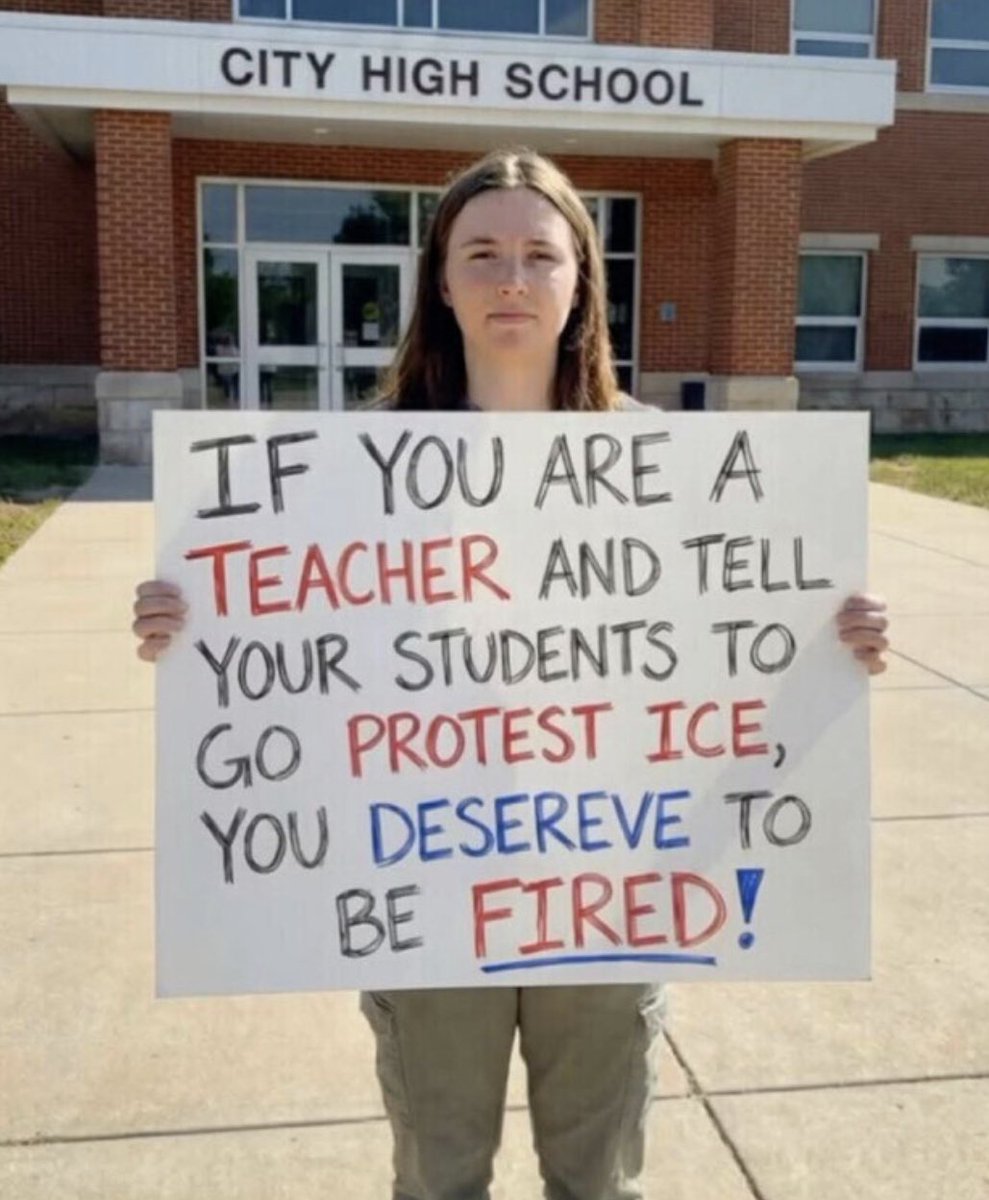 CITY HIGH SCHOOL
IF YOU ARE A
TEACHER AND TELL
YOUR STUDENTS TO
GO PROTEST ICE,
YOU DESEREVE TO
BE FIRED!